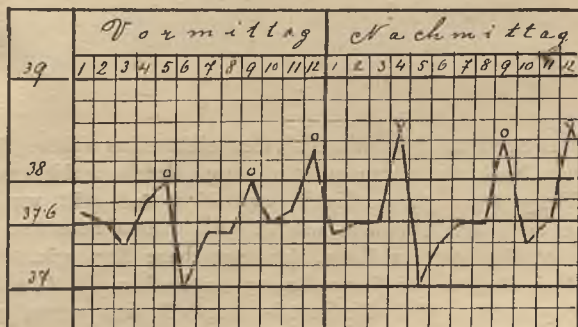 Vormittag Nachmittag
39 1 2 3 4 5 6 7 8 9 10 11 12 1 2 3 4 5 6 7 8 9 10 11 12
38
37·6
37